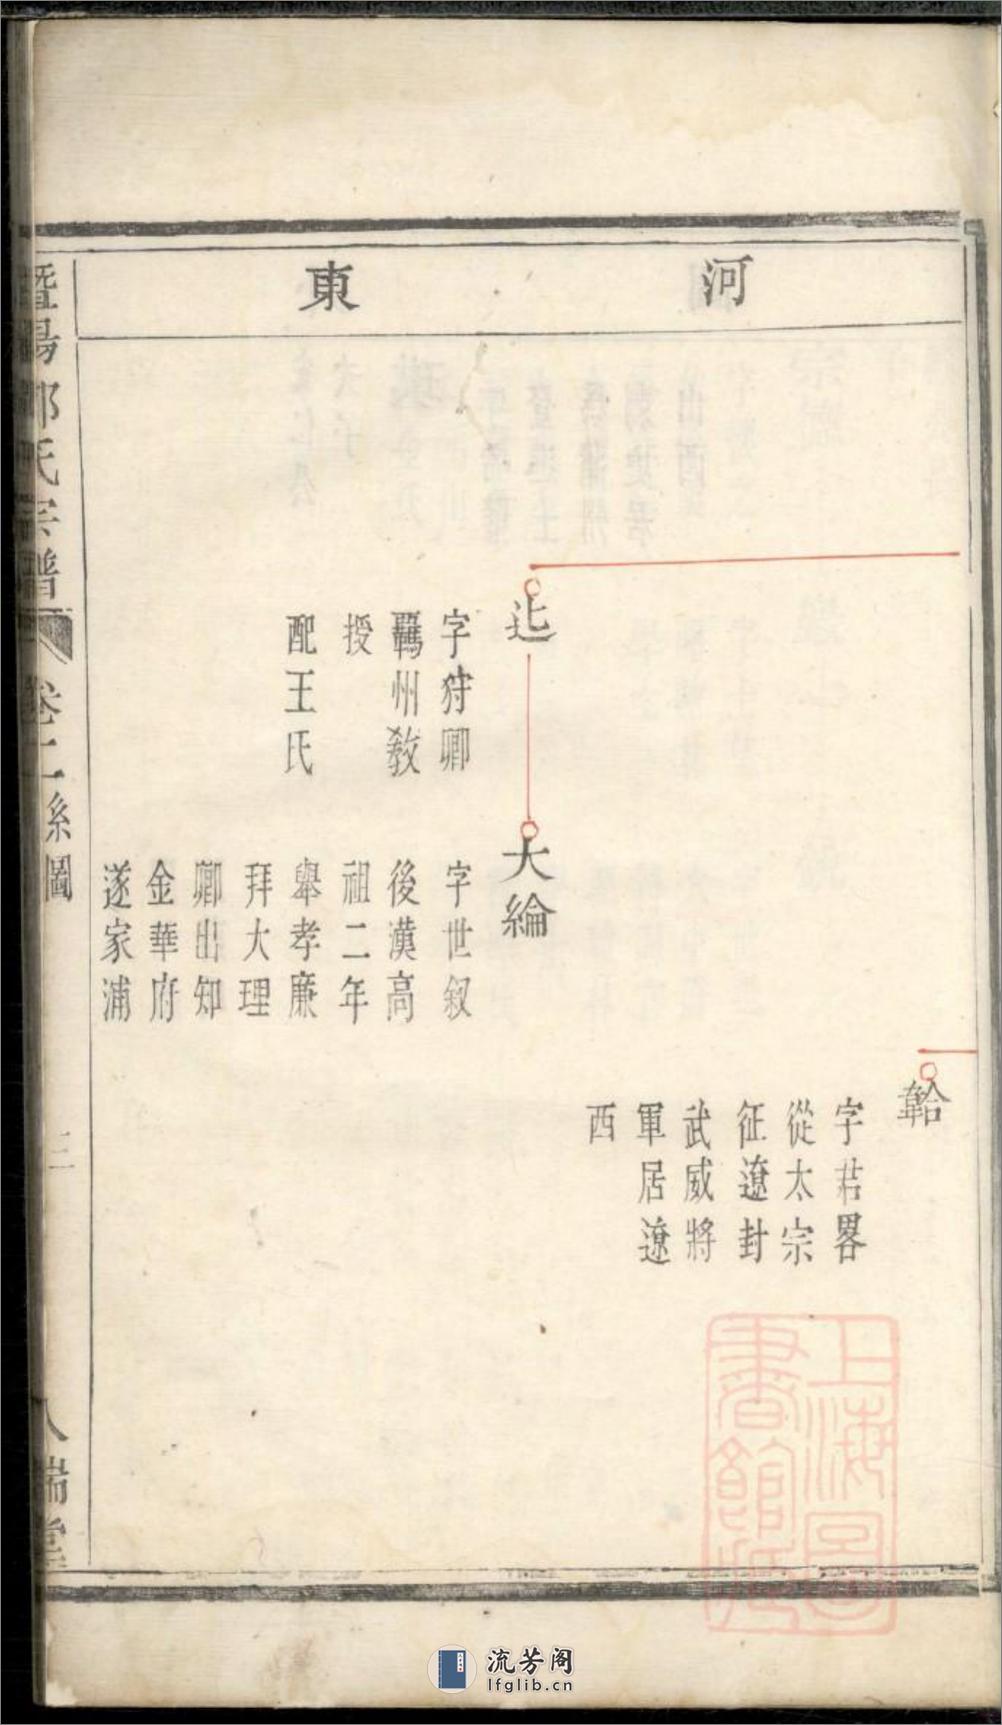 河東
韐
字君畧
從太宗
征遼封
武威將
軍居遼
西
字狩卿
覊州教
授
配王氏
大綸
字世叙
後漢高
祖二年
舉孝廉
拜大理
卿出知
金華府
遂家浦
暨陽氏宗譜
卷二
系圖
三
人瑞堂
上海圖
書館藏
流芳阁
lfglib.cn